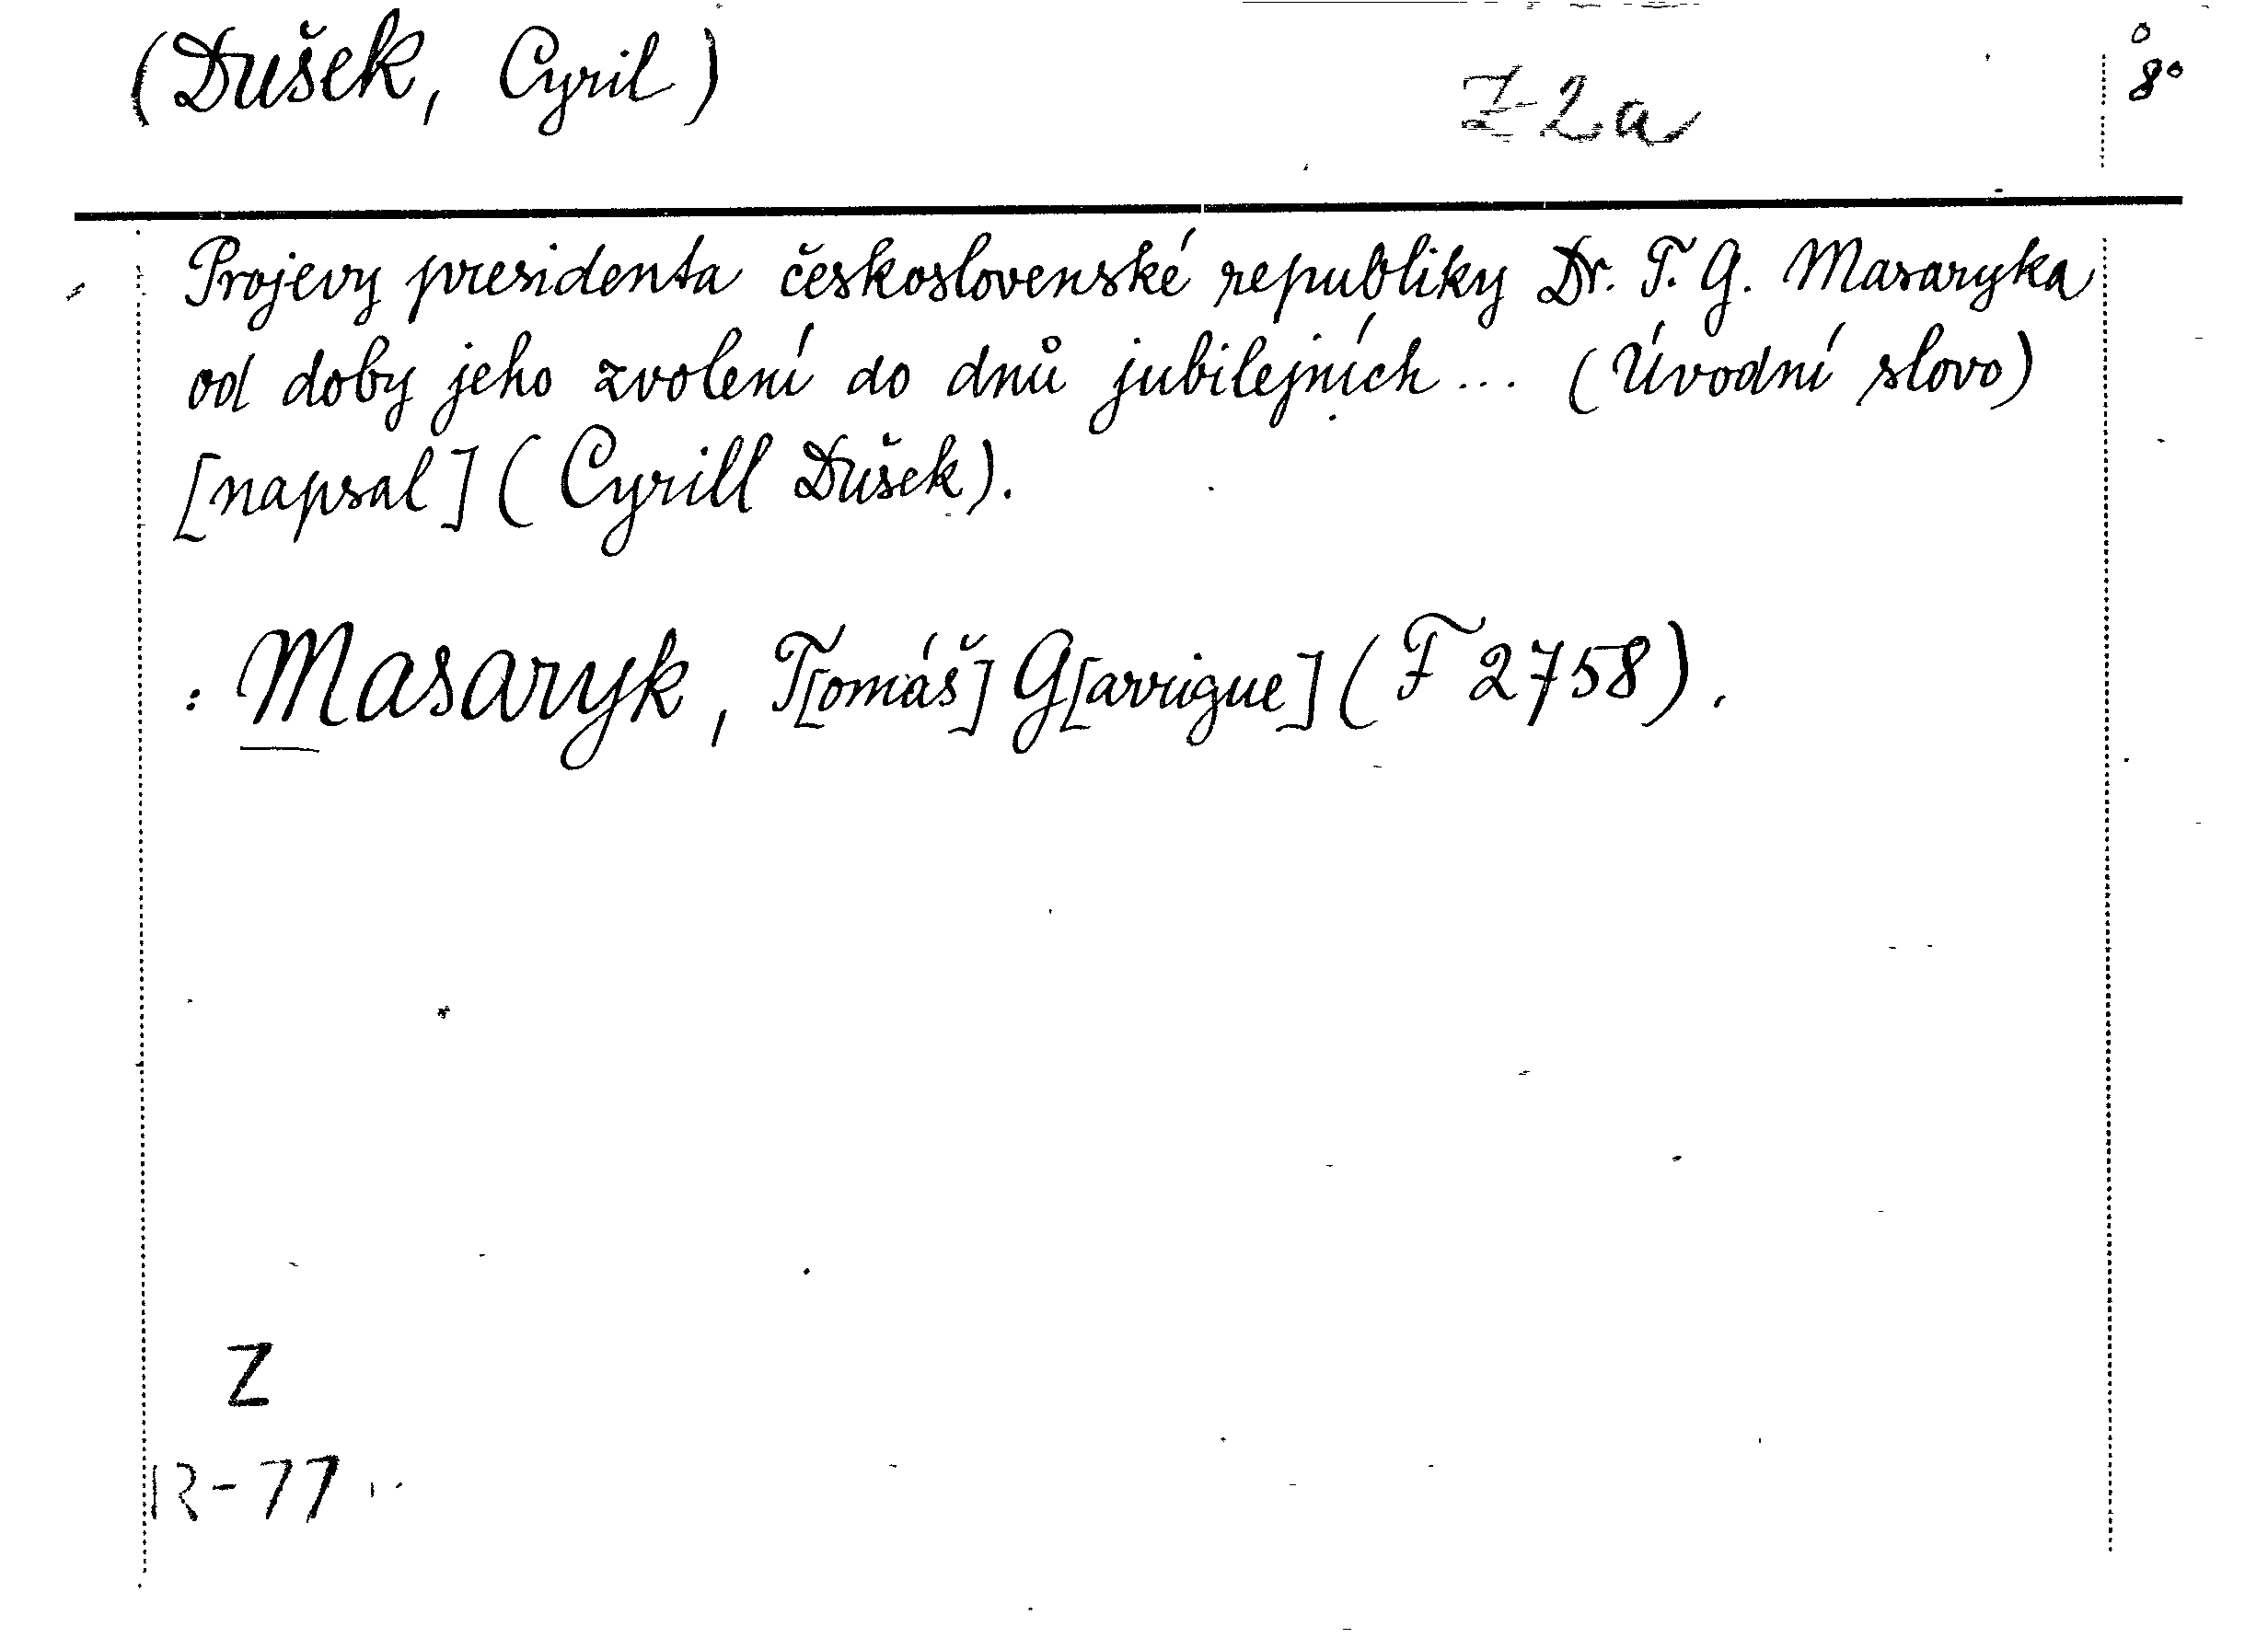 (Dušek, Cyril) Z-2a 8°
Projevy presidenta československé republiky Dr. T. G. Masaryka
od doby jeho zvolení do dnů jubilejních... (Úvodní slovo)
[napsal] (Cyrill Dušek).
: Masaryk, T[omáš] G[arrigue] (F 2758).
Z
R-77